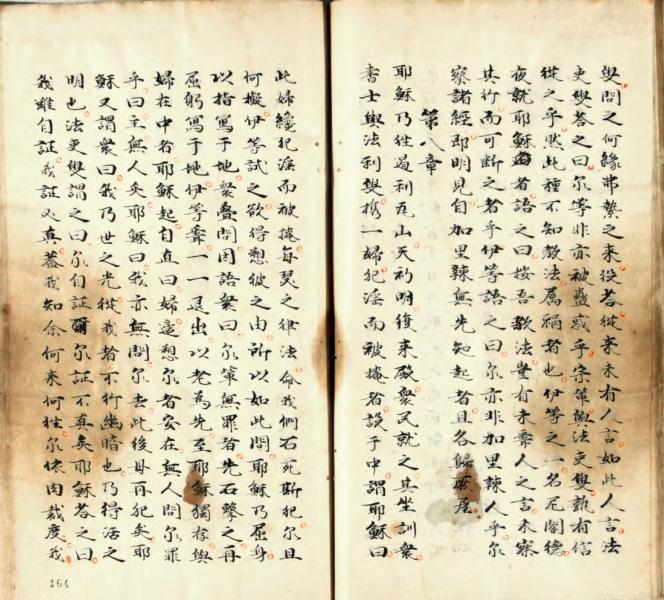 與問之何緣弗縶之来役荅從来未有人言如此人言法
吏與荅之曰尔等非亦被蠱惑乎宗軰與法吏與誰有信
從之乎然此種不知教法属禍者也伊等之一名尼閣德
夜就耶穌者語之曰按吾教法豈有未聽人之言未察
其行而可断之者乎伊等語之曰尔亦非加里辣人乎尔
察諸經即明見自加里辣無先知起者且各歸厥居
第八章
耶穌乃徃過利瓦山天初明復来殿衆民就之其坐訓衆
書士與法利與擕一婦犯淫而被掩者設于中謂耶穌曰
此婦纔犯淫而被掩每瑟之律法命我們石死斯犯尔且
何擬伊等試之欲得愬彼之由所以如此問耶穌乃屈身
以指寫于地衆疊問因語衆曰尔軰無罪者先石擊之再
屈躬寫于地伊等聽一一退出以老為先至耶穌獨存與
婦在中者耶穌起自直曰婦邉愬尔者安在無人問尔罪
乎曰主無人矣耶穌曰我亦無問尔去此後毋再犯矣耶
穌又謂衆曰我乃世之光從我者不行幽暗也乃得活之
明也法吏與謂之曰尔自証尔証不真矣耶穌荅之曰
我雖自証我証必真蓋我知余何来何徃尔依肉裁度我
164